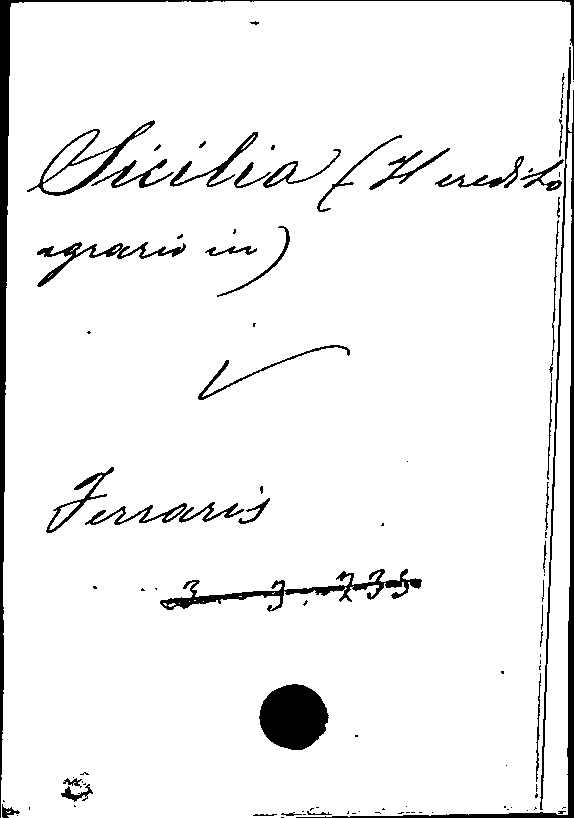 Sicilia (Il credito
agrario in)
Ferraris
3 3.235